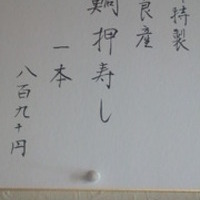 特製
良産
鯛押寿し
一本
八百九十円